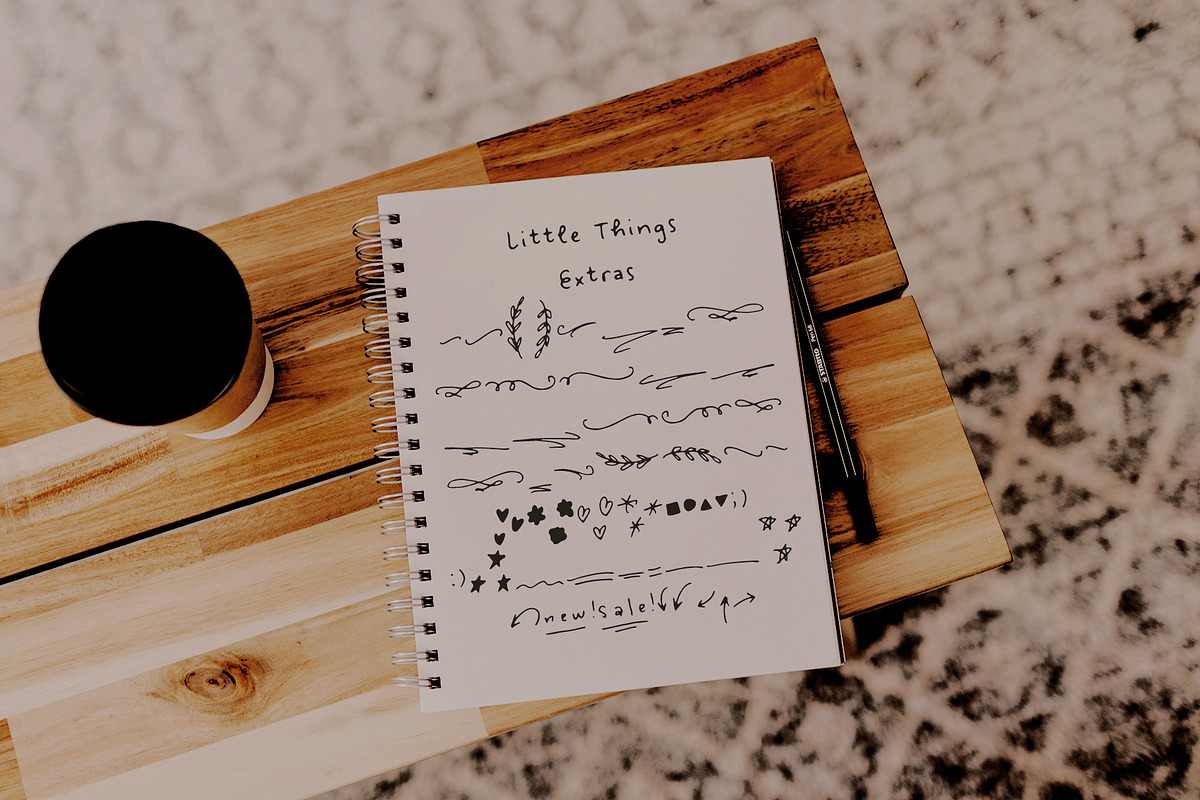 Little Things
Extras
;)
:)
new! sale!
STABILO